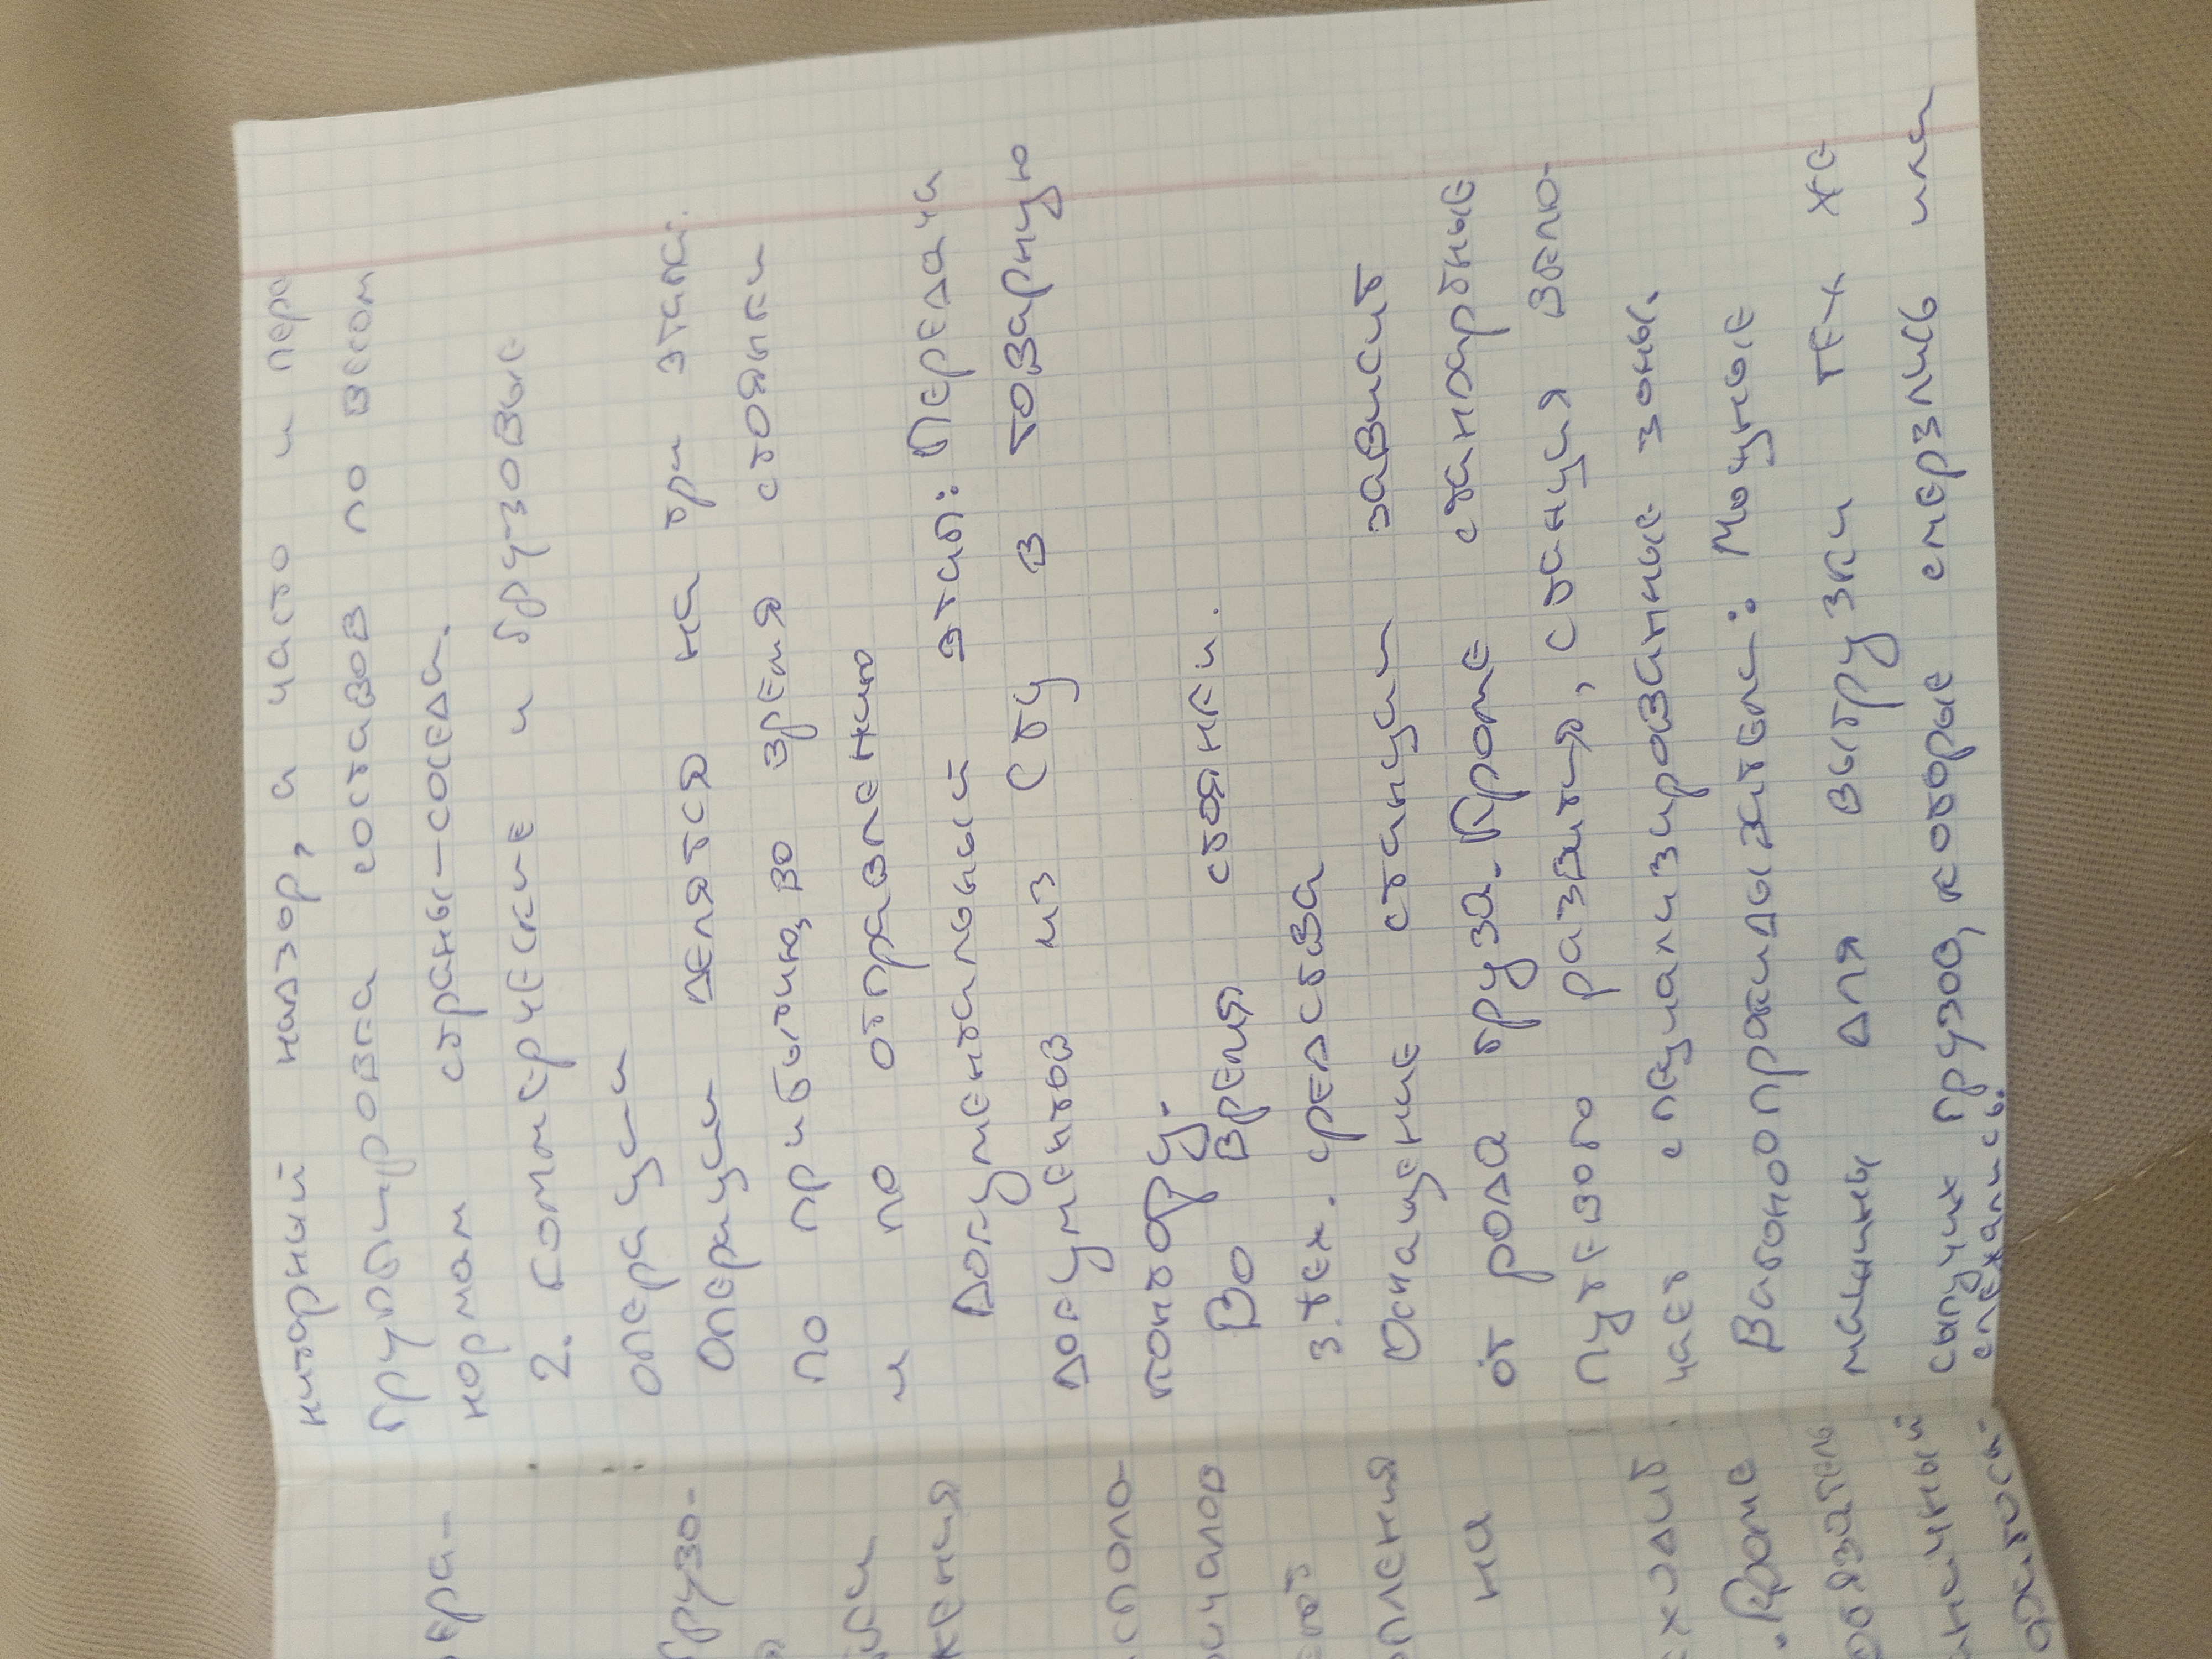 нитарный надзор, а часто и пере
группировка составов по весом
нормам страны-соседа.
2. Коммерческие и грузовые
операции
Операции делятся на три этапа:
по прибытию, во время стоянки
и по отправлению
Документальный этап: Передача
документов из СТЦ в товарную
контору.
Во время стоянки.
3. Тех. средства
Оснащение станции зависит
от рода груза. Кроме стандартные
путевого развития, станция вклю-
чает специализированные зоны.
Вагоноопракидыжители: Мощные
машины для выгрузки тех же
сыпучих грузов, которые смерзлись или
слежались.
ера-
грузо-
жения
споло-
на
ходит
. Кроме